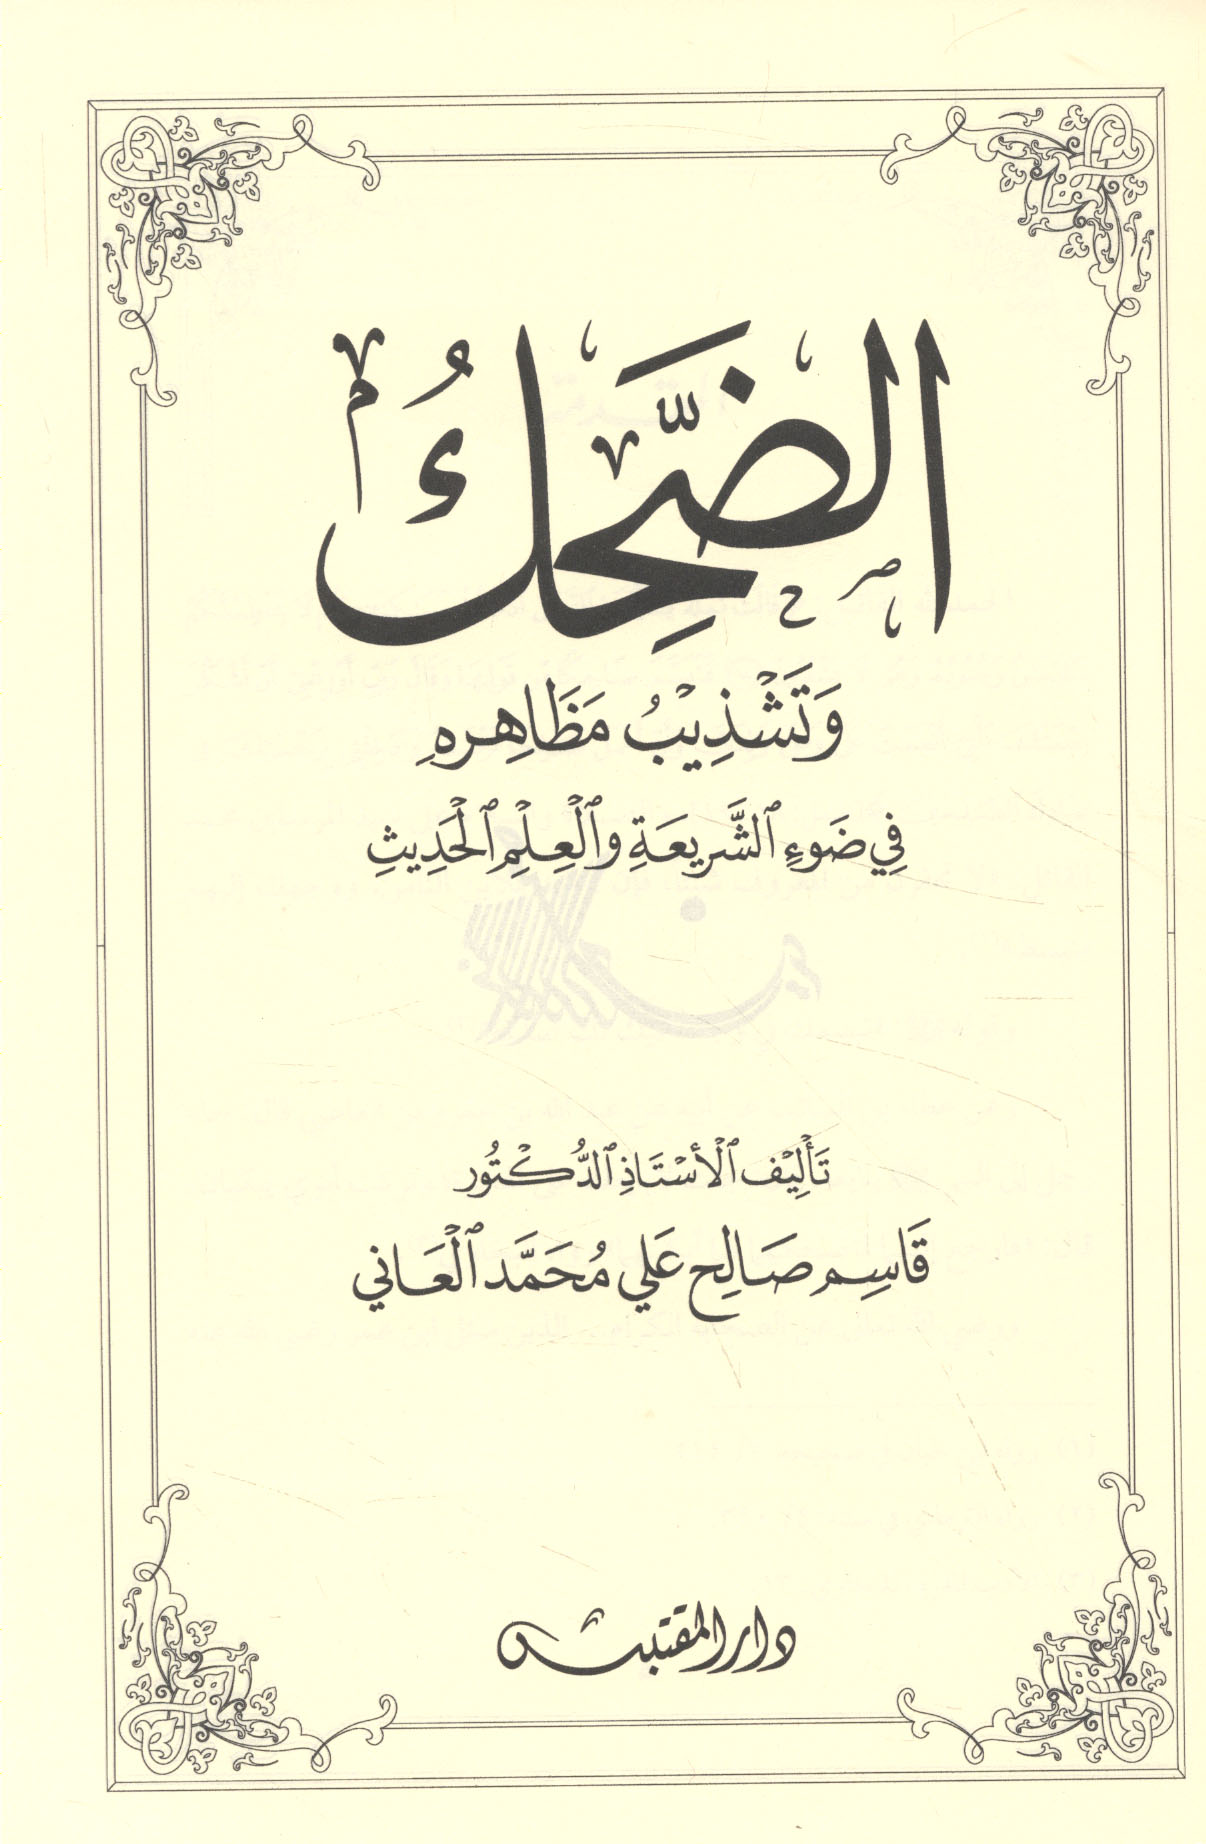 الضَّحِكُ
وَتَشْذِيبُ مَظَاهِرِهِ
فِي ضَوءِ الشَّرِيعَةِ وَالْعِلْمِ الْحَدِيثِ
تَأْلِيْف الْأسْتَاذِ الدُّكْتُور
قَاسِم صَالِح عَلي مُحَمَّد الْعَاني
دار المقتبس